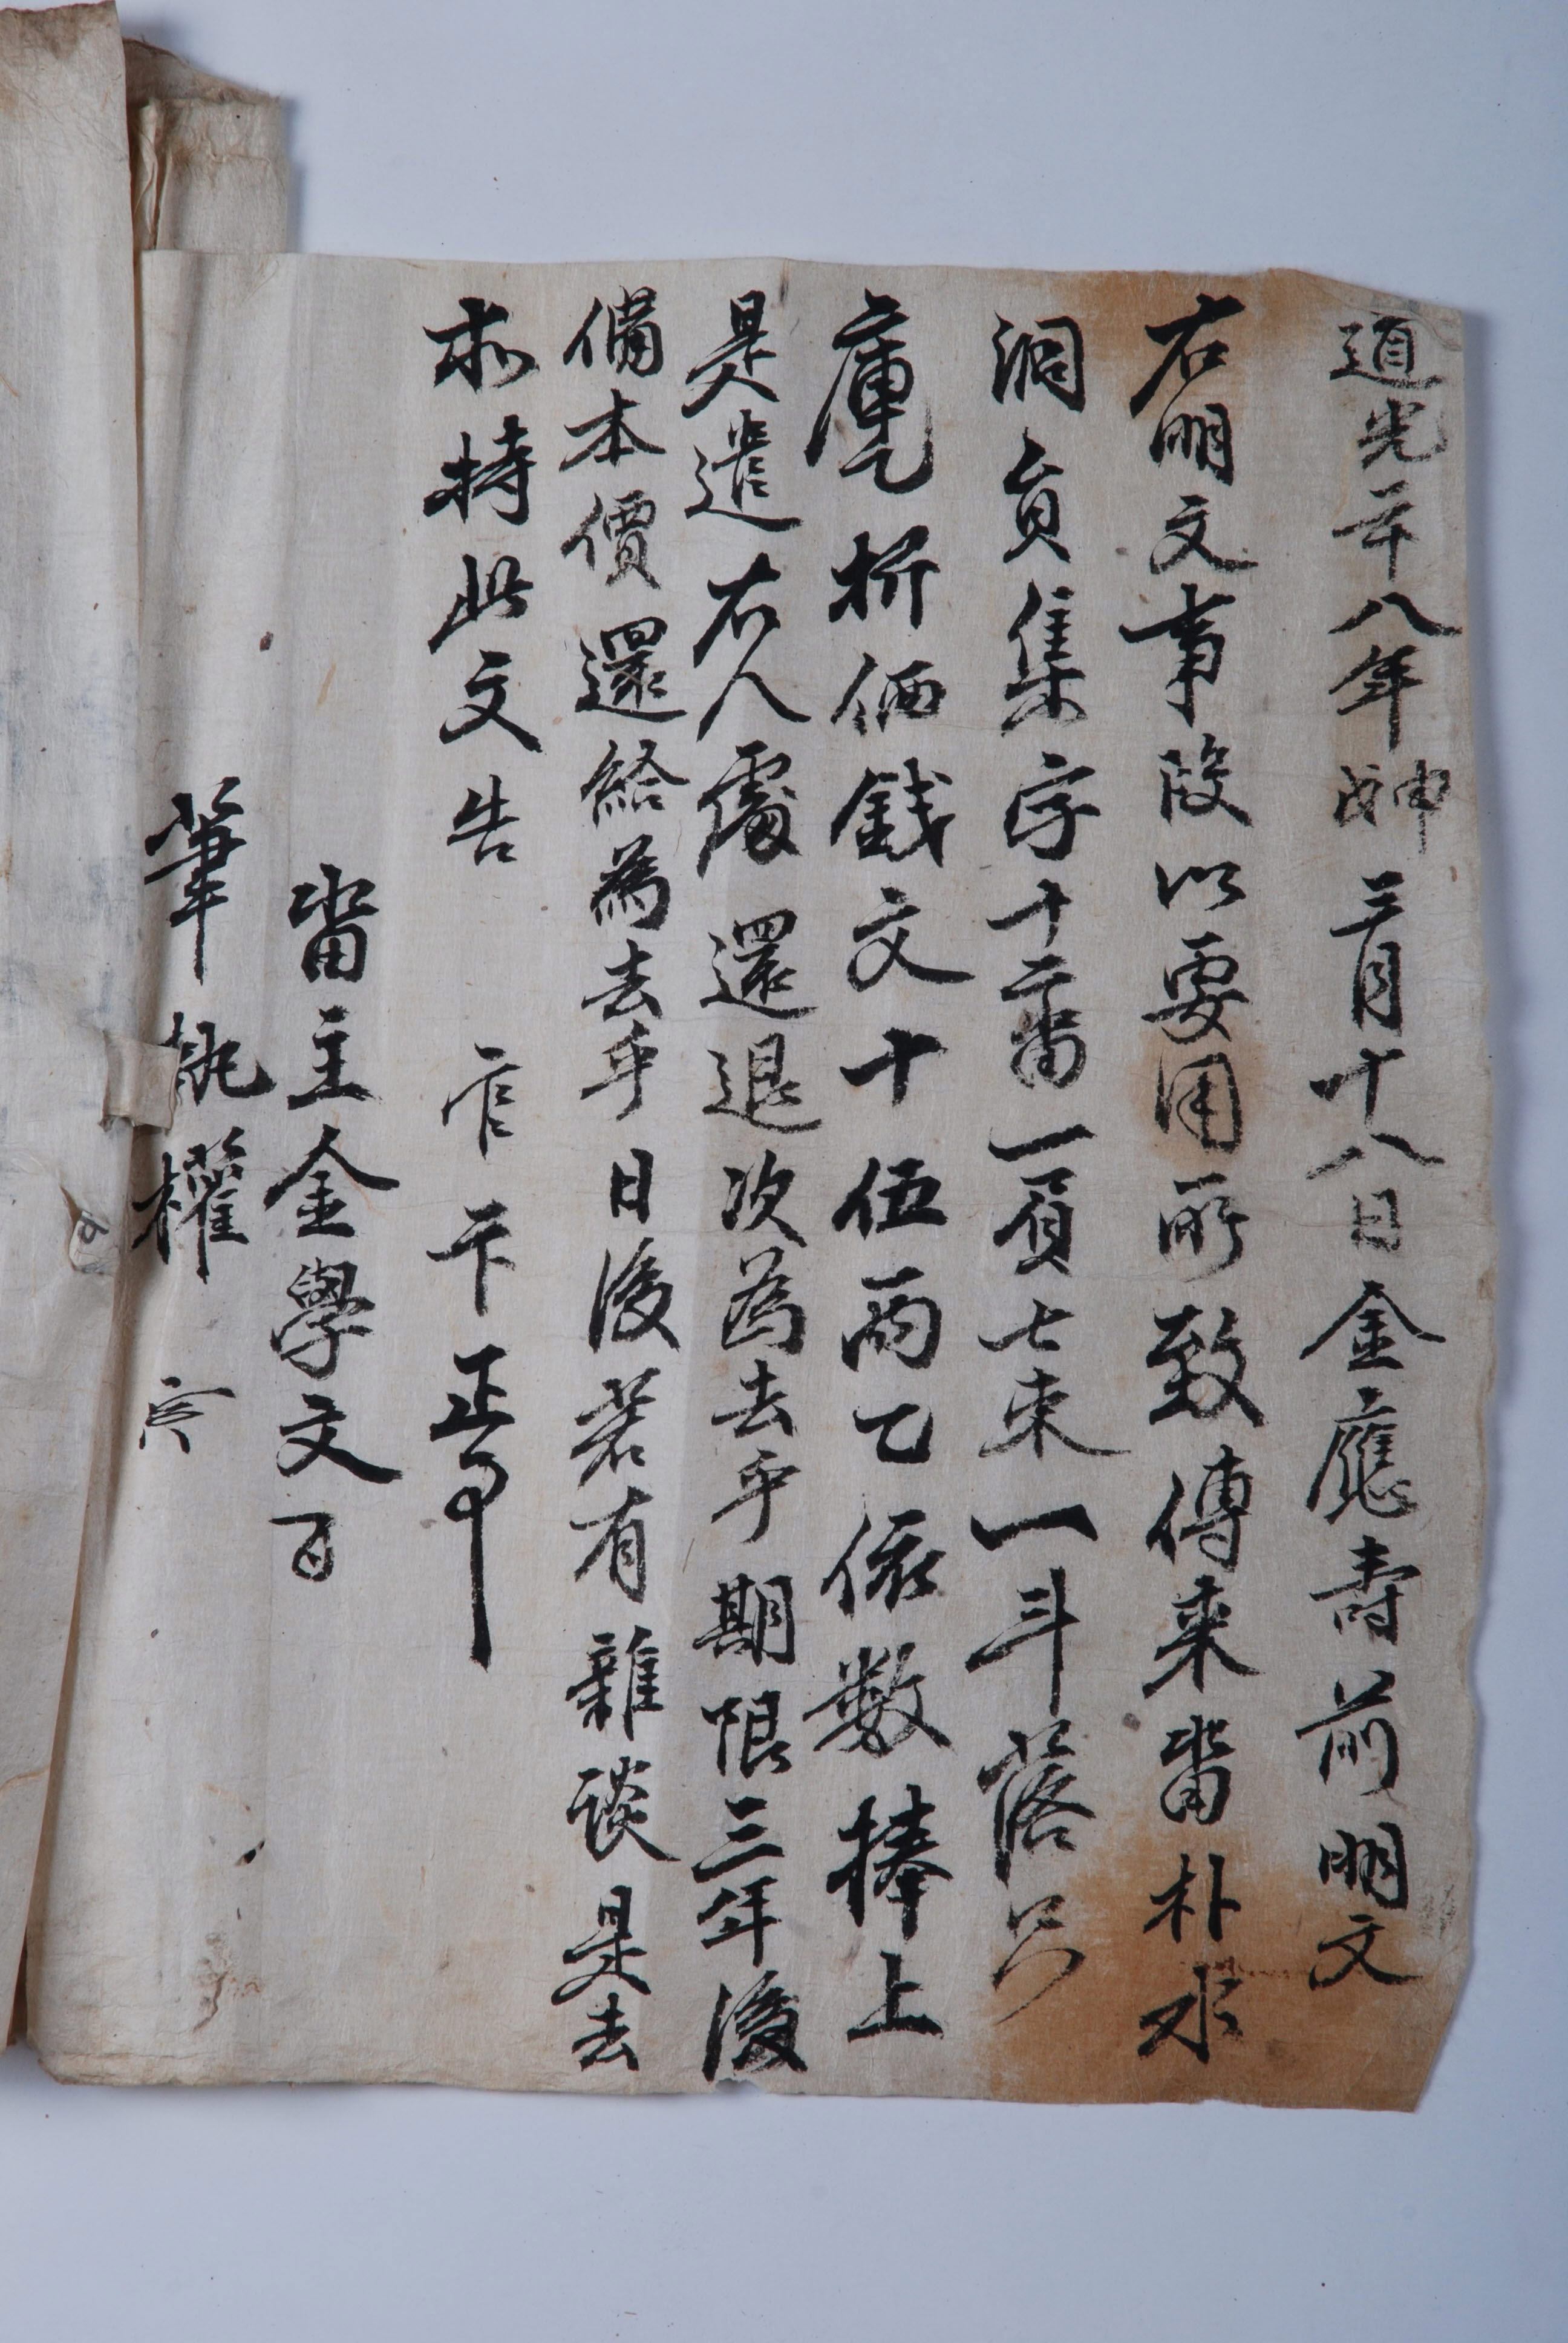 道光二十八年戊申三月十八日金應壽前明文
右明文事段以要用所致傳來畓朴水
洞員集字十二畓一負七束一斗落只
庫乙折価錢文十伍兩乙依數捧上
是遣右人處還退次為去乎期限三年後
備本價還給為去乎日後若有雜談是去
木持此文告官卞正事
畓主金學文
筆執權